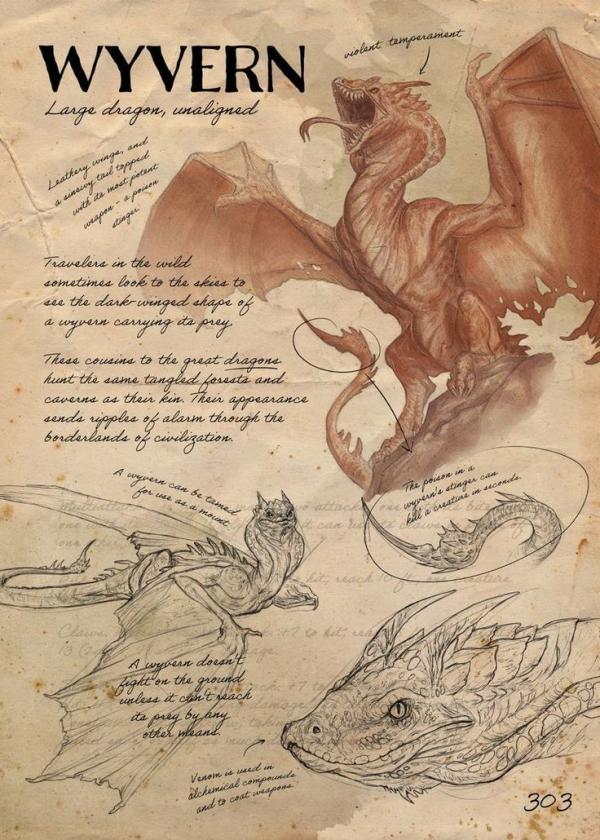 WYVERN
Large dragon, unaligned
violent temperament
Leathery wings, and
a sinewy tail topped
with its most potent
weapon - a poison
stinger
Travelers in the wild
sometimes look to the skies to
see the dark-winged shape of
a wyvern carrying its prey.
These cousins to the great dragons
hunt the same tangled forests and
caverns as their kin. Their appearance
sends ripples of alarm through the
borderlands of civilization.
A wyvern can be tamed
for use as a mount.
The poison in a
wyvern's stinger can
kill a creature in seconds.
to hit, reach 10 ft., one creature
Claws. +7 to hit, rea
A wyvern doesn't
fight on the ground
unless it can't reach
its prey by any
other means.
Venom is used in
alchemical compounds
and to coat weapons.
303